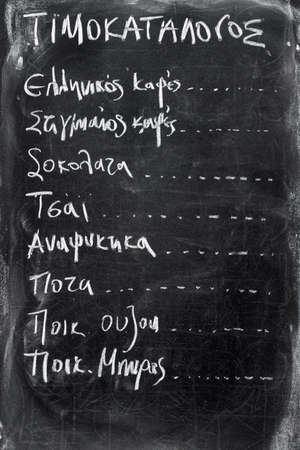 ΤΙΜΟΚΑΤΑΛΟΓΟΣ
Ελληνικός καφές ..........
Στιγμιαίος καφές ..........
Σοκολατα ..........
Τσαι ..........
Αναψυκτικα ..........
Ποτα ..........
Ποικ ουζου ..........
Ποικ. Μπυρας ..........